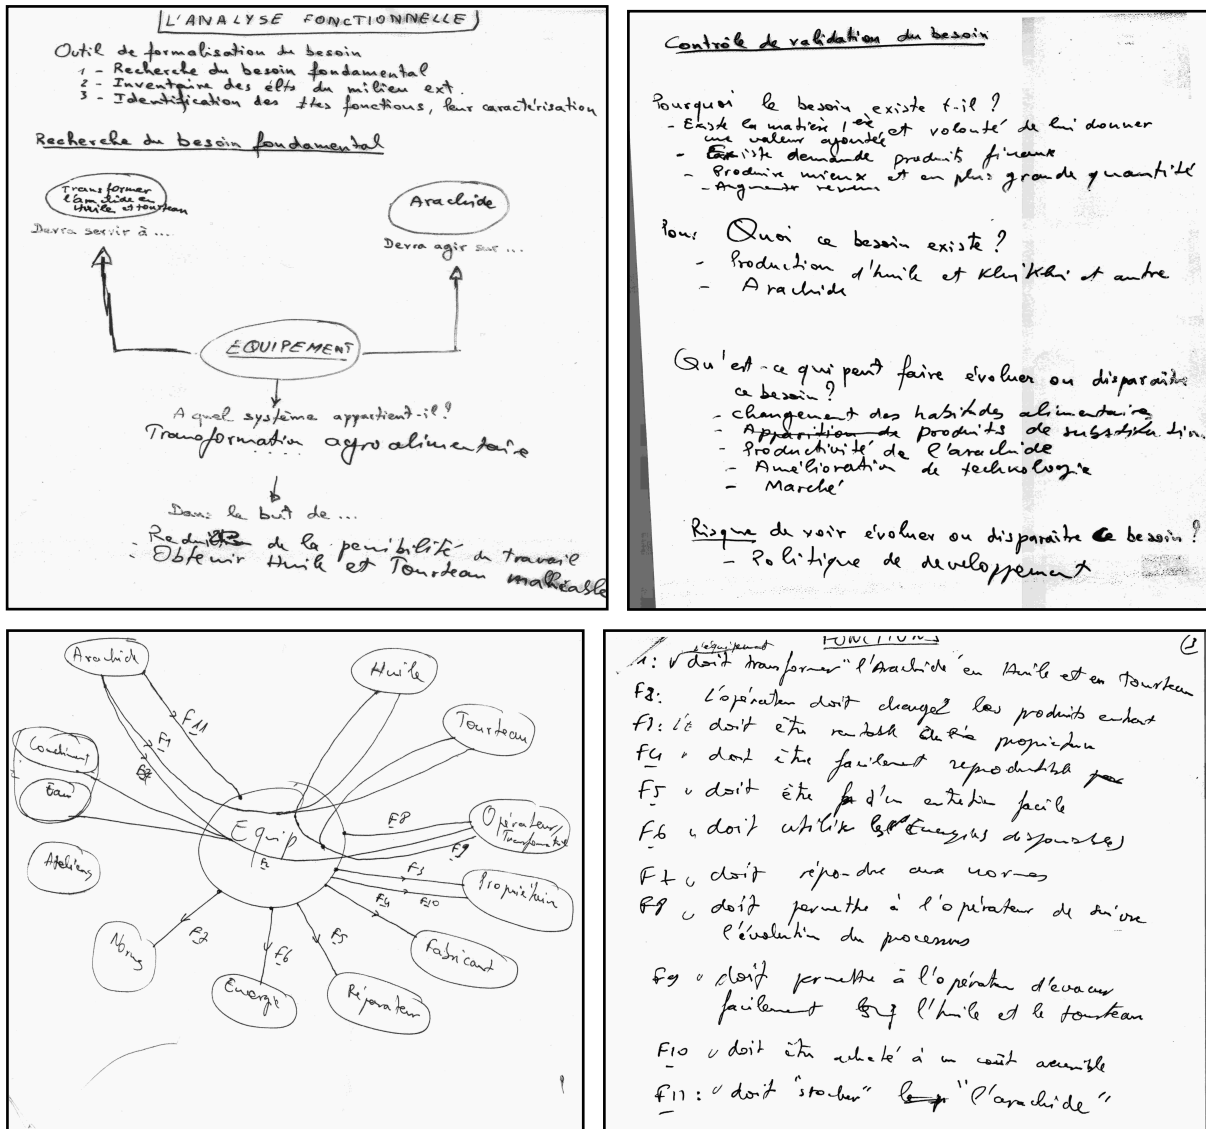 L'ANALYSE FONCTIONNELLE
Outil de formalisation du besoin
1 - Recherche du besoin fondamental
2 - Inventaire des élts du milieu ext.
3 - Identification des ≠tes fonctions, leur caractérisation
Recherche du besoin fondamental
Transformer
l'arachide en
Huile et tourteau
Devra servir à ...
Arachide
Devra agir sur ...
EQUIPEMENT
A quel système appartient-il?
Transformation agroalimentaire
Dans le but de ...
- de la penibilité du travail
- Obtenir Huile et Tourteau malléable
Contrôle de validation du besoin
Pourquoi le besoin existe t-il ?
- Existe la matière 1ère et volonté de lui donner
une valeur ajoutée
- Existe demande produits finaux
- Produire mieux et en plus grande quantité
- Augmenter revenu
Pour Quoi ce besoin existe ?
- Production d'huile et KluiKlui et autre
- Arachide
Qu'est-ce qui peut faire évoluer ou disparaître
ce besoin?
- changement des habitudes alimentaire
- Apparition de produits de substitution
- Productivité de l'arachide
- Amélioration de technologie
- Marché
Risque de voir évoluer ou disparaitre ce besoin?
- Politique de developpement
Arachide
Huile
Tourteau
F11
F1
F2
Condiment
Eau
Equip
F8
Opérateur/
F9
Ateliers
F3
F10
Propriétaire
F4
Fabricant
F5
Réparateur
F6
Energie
F7
Normes
FONCTIONS
3
l'équipement
1: doit transformer "l'Arachide en Huile et en tourteau
F2: L'opérateur doit charger les produits entrant
F3: doit être rentable propriétaire
F4 " doit être facilement reproductible
F5 " doit être d'un entretien facile
F6 " doit utiliser les Energies disponibles
F7 " doit répondre aux normes
F8 " doit permettre à l'opérateur de suivre
l'évolution du processus
F9 " doit permettre à l'opérateur d'evacuer
facilement l'huile et le tourteau
F10 " doit être acheté à un coût accessible
F11 : " doit "stocker" "l'arachide"